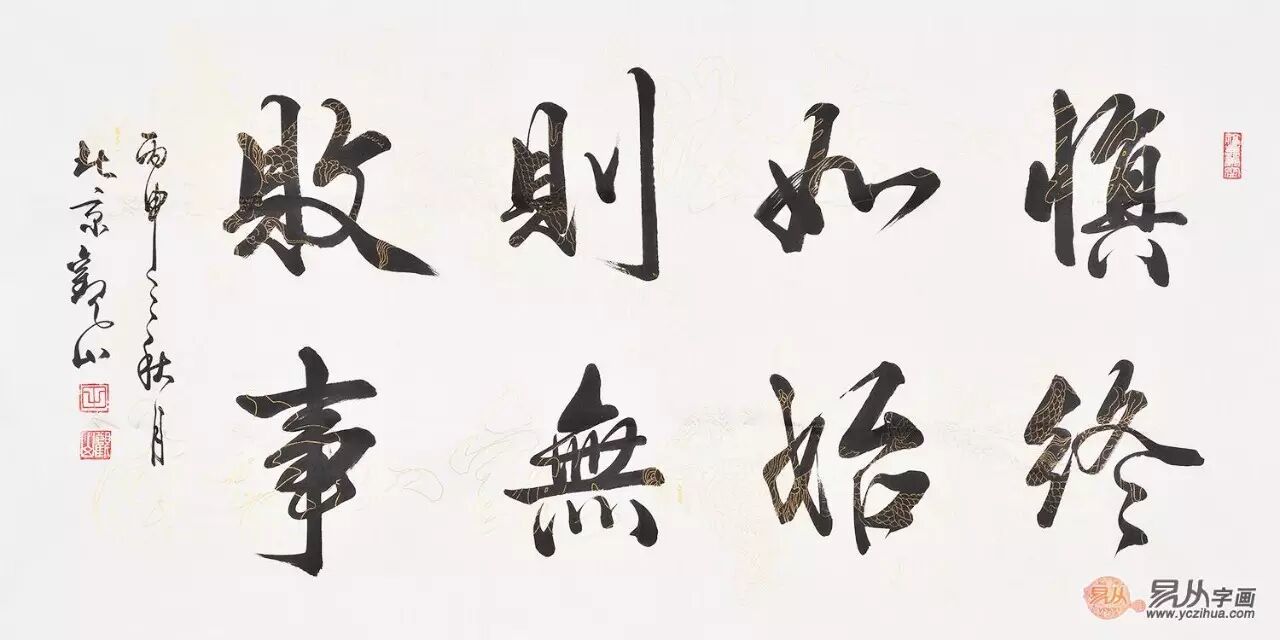 慎終
如始
則無
敗事
丙申之秋月
北京觀山
易从字画
www.yczihua.com